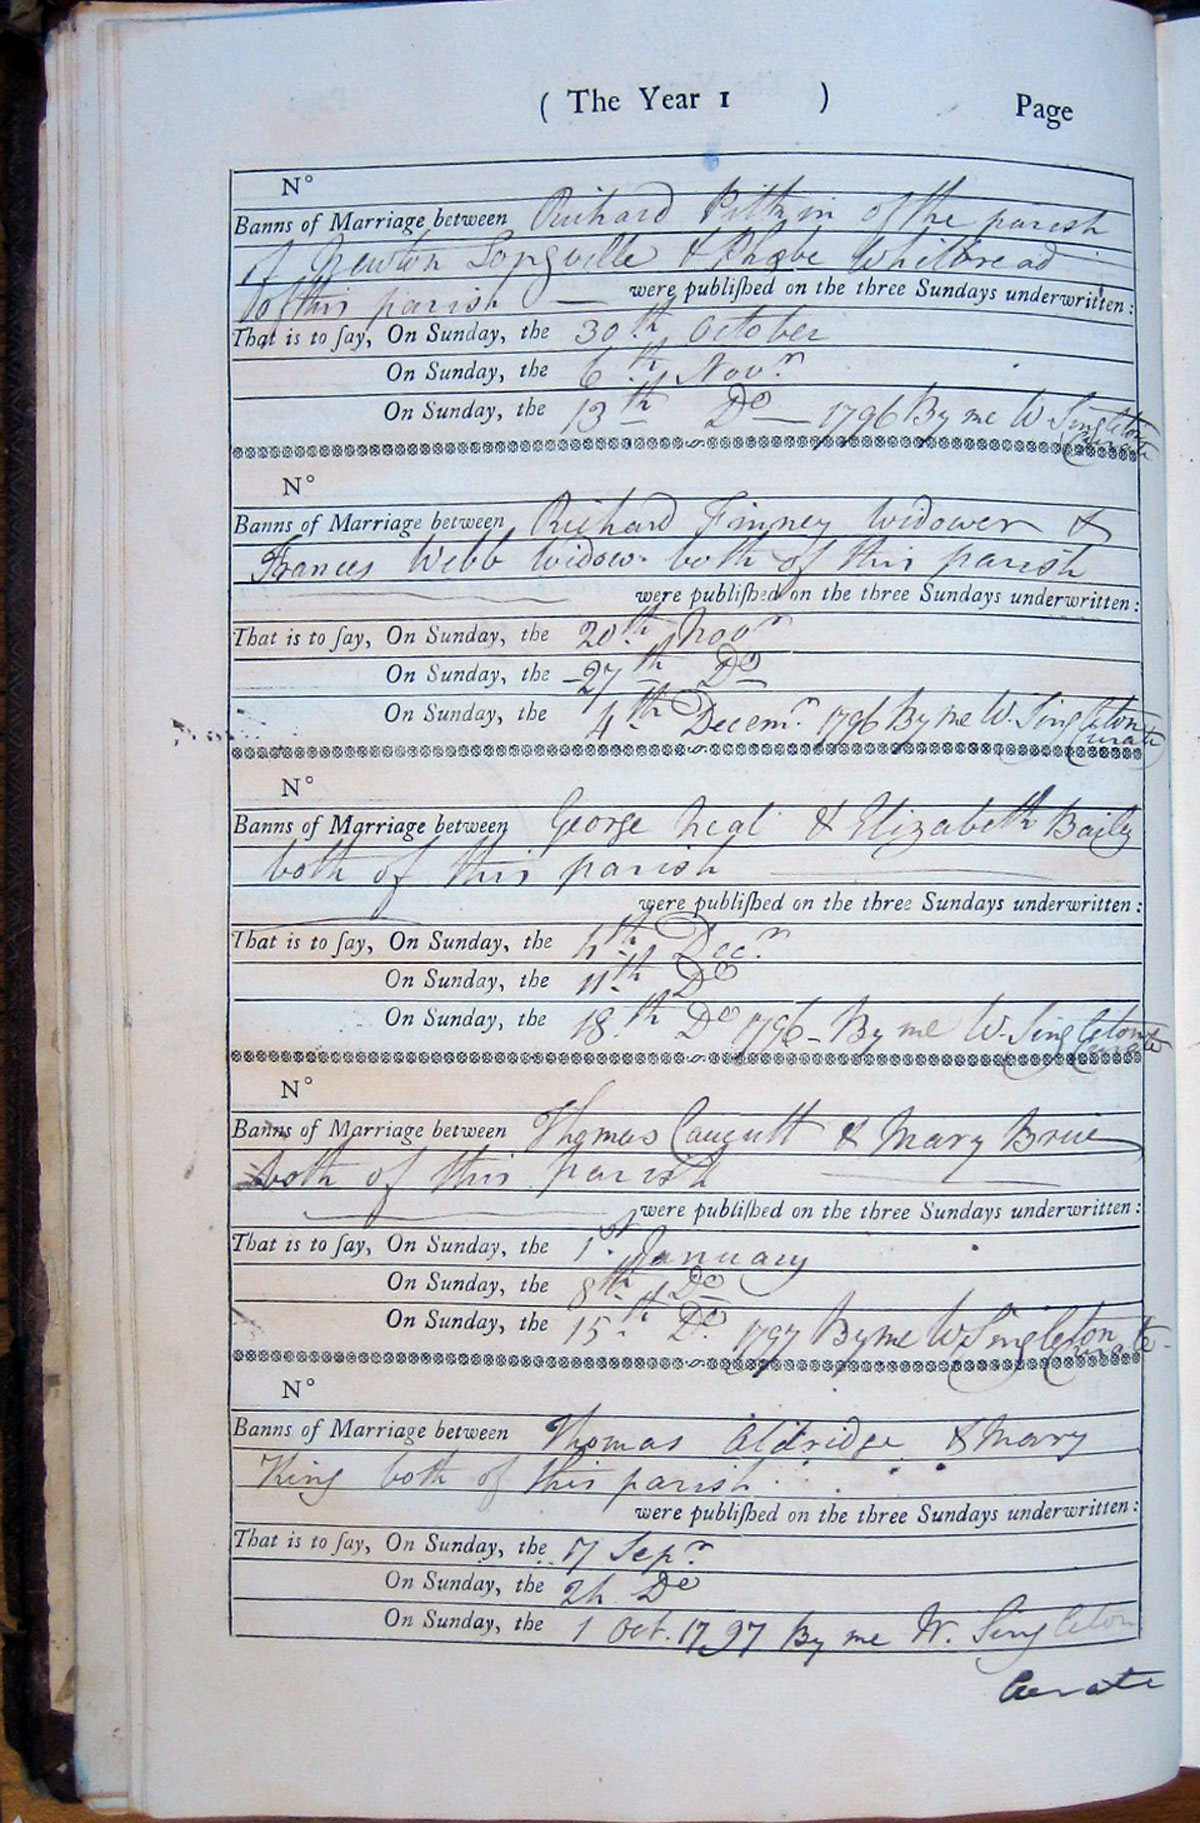 ( The Year 1 ) Page
N°
Banns of Marriage between Richard Pitkin of the parish
of Newton Longville & Phœbe Whitbread
of this parish — were publiſhed on the three Sundays underwritten:
That is to ſay, On Sunday, the 30th October
On Sunday, the 6th Novr
On Sunday, the 13th Do — 1796 By me W Singleton
Curate
N°
Banns of Marriage between Richard Finney Widower &
Frances Webb Widow both of this parish
were publiſhed on the three Sundays underwritten:
That is to ſay, On Sunday, the 20th Novr
On Sunday, the 27th Do
On Sunday, the 4th Decemr 1796 By me W. Singleton
Curate
N°
Banns of Marriage between George Neal & Elizabeth Baily
both of this parish
were publiſhed on the three Sundays underwritten:
That is to ſay, On Sunday, the 4th Decr
On Sunday, the 11th Do
On Sunday, the 18th Do 1796 - By me W. Singleton
Curate
N°
Banns of Marriage between Thomas & Mary
both of this parish
were publiſhed on the three Sundays underwritten:
That is to ſay, On Sunday, the 1st January
On Sunday, the 8th Do
On Sunday, the 15th Do 1797 By me W Singleton
Curate
N°
Banns of Marriage between Thomas Aldridge & Mary
King both of this parish
were publiſhed on the three Sundays underwritten:
That is to ſay, On Sunday, the 17 Sepr
On Sunday, the 24 Do
On Sunday, the 1 Oct. 1797 By me W. Singleton
Curate